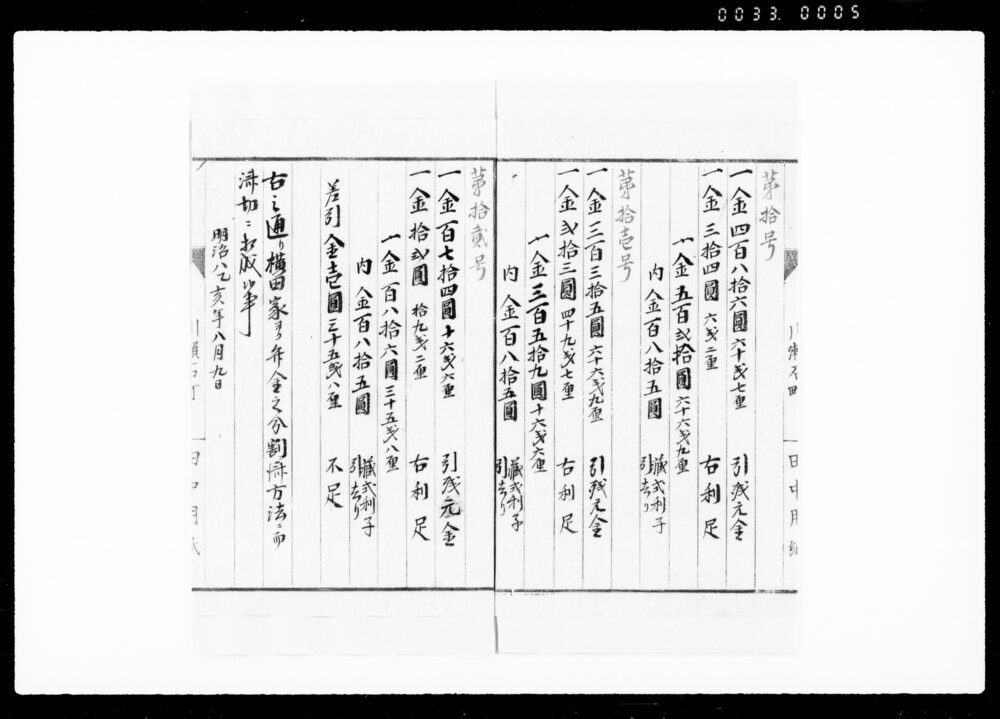 0033. 0005
第拾号
一金四百八拾六圓六十戋七厘 引残元金
一金三拾四圓六戋二厘 右利足
〆金五百弐拾圓六十六戋九厘
内 金百八拾五圓 蔵弐利子引去り
第拾壱号
一金三百三拾五圓六十六戋九厘 引残元金
一金弐拾三圓四十九戋七厘 右利足
〆金三百五拾九圓十六戋六厘
内 金百八拾五圓 蔵弐利子引去り
第拾貳号
一金百七拾四圓十六戋六厘 引残元金
一金拾弐圓拾九戋二厘 右利足
〆金百八拾六圓三十五戋八厘
内 金百八拾五圓 蔵弐利子引去り
差引金壱圓三十五戋八厘 不足
右之通り横田家ヨリ年金之分割済方法ニ而
済切ニ相成候事
明治八乙亥年八月九日